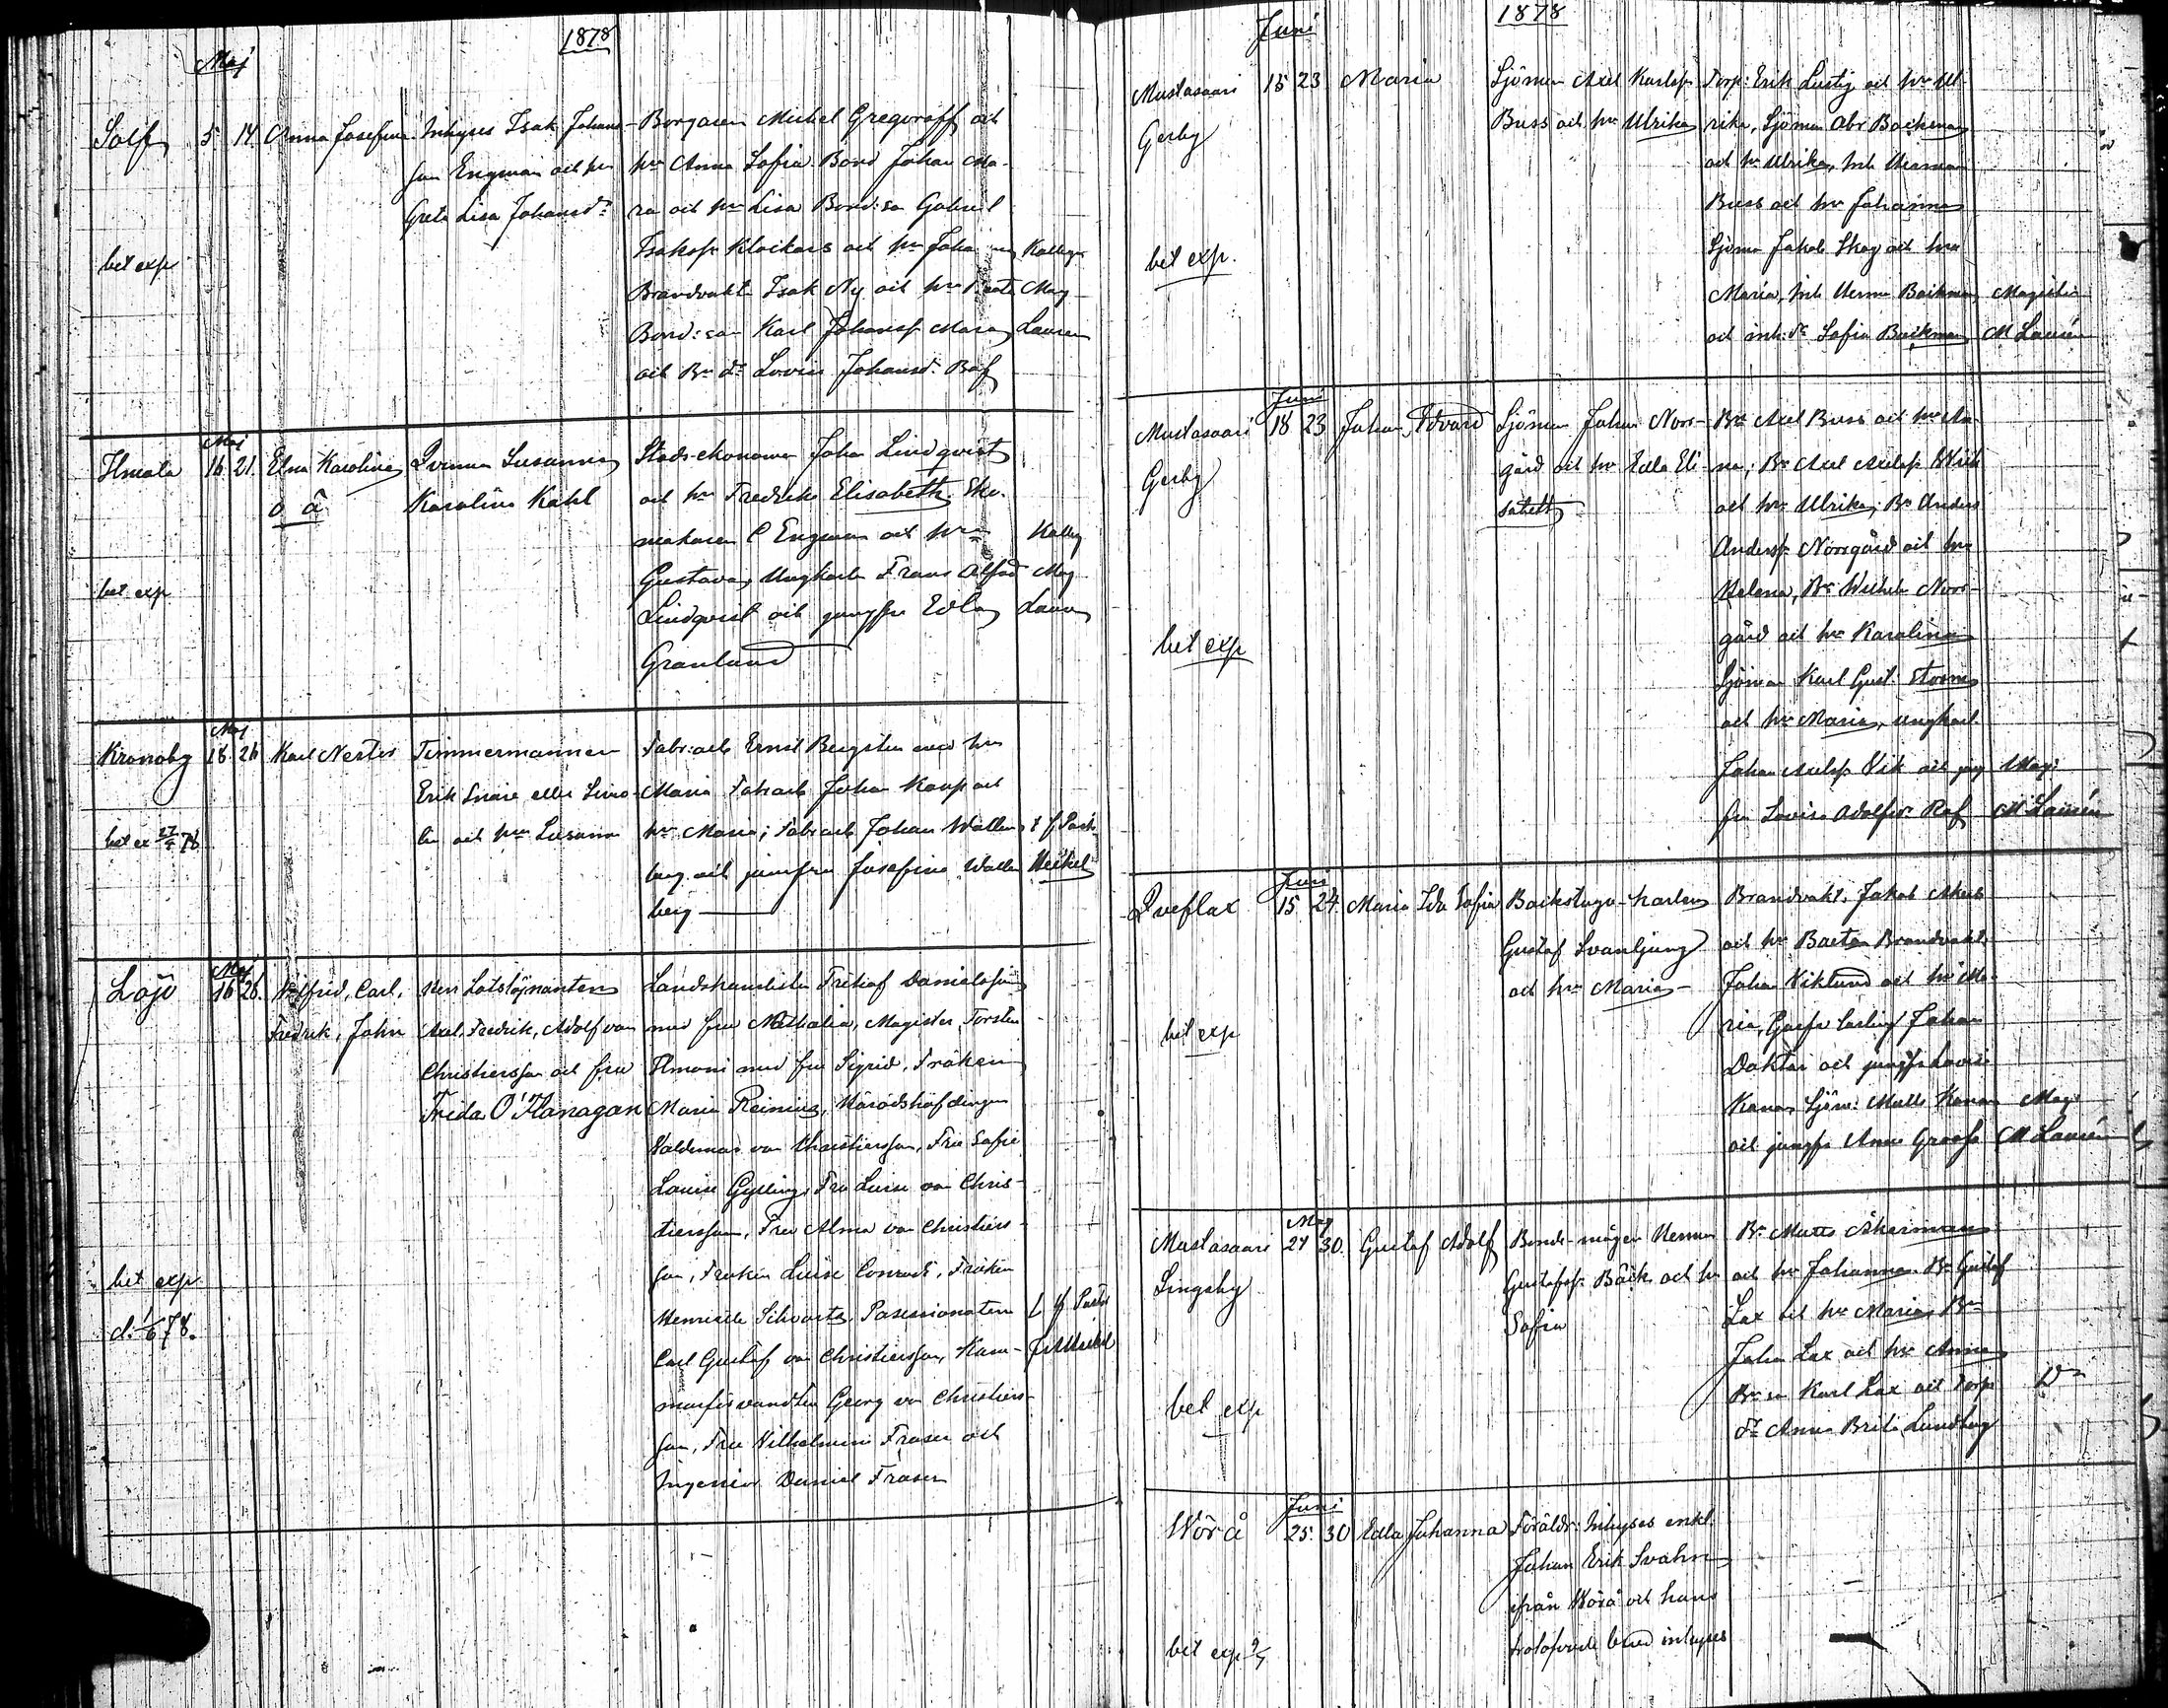 1878
Maj
Solf 5 14 Anna Josefina Inhyses Isak Johans-
son Engman och hu
Greta Lisa Johansdr
Borgaren Mickel Gregoroff och
hu Anna Sofia. Bond Johan Ma-
ra och hu Lisa Bond:so Gabriel
Isaksson Klockars och hu Johanna
Brandvakt Isak Ny och hu Beata
Bond:son Karl Johanss. Mara
och Br dr Lovisa Johansd. Båf
Kolleg
Mag
Lauren
bet exp
Maj
Ilmola 16 21. Elna Karolina
o ä
Qvinnan Susanna
Karolina Kahl
Stads-ekonomen Johan Lindqvist
och hu Fredrika Elisabeth. Sko-
makaren C Engman och hu
Gustava, Ungkarlen Frans Alfred
Lindqvist och jungfru Edla
Granlund
Kolleg
Mag
Lauren
bet exp
Maj
Kronoby 18 26 Karl Nestor
Timmermannen
Erik Snåre eller Limo-
lin och hu Susanna
Fabr:arb Ernst Bergsten med hu
Maria Fabrarb Johan Knup och
hu Maria; Fabrarb Johan Wallen
berg och jumfru Josefina Wallen
berg
t f Past.
Heikel
bet ex 27/5 78
Maj
Lojo 16 26. Wilfrid, Carl,
Fredrik, John
Herr Lotslöjnanten
Axel, Fredrik, Adolf von
Christiersson och fru
Frida O'Flanagan
Landskamrer Fritiof Danielsson
med fru Nathalia, Magister Torsten
Ilmoni med fru Sigrid, Fröken
Maria Reinius, Häradshöfdingen
Valdemar von Christiersson, Fru Sofie
Louise Gylling, Fru Luise von Chris-
tiersson, Fru Alma von Christiers-
son, Fröken Luise Conradi, Fröken
Henriette Schwartz, Possessionaten
Carl Gustaf von Christiersson, Kam-
marförvandten Georg von Christiers-
son, Fru Vilhelmina Fraser och
Ingeniör Daniel Fraser
t f Pastor
Heikel
bet exp
d. 1/6 78.
1878
Juni
Mustasaari 15 23 Maria
Gerby
Sjöman Axel Karlsson
Buss och hu Ulrika
Torp: Erik Lustig och hu Ul-
rika, Sjöman Abr Backman
och hu Ulrika, Inh Herman
Buss och hu Johanna
Sjöman Jakob Skog och hu
Maria, Inh Herman Backman
och inh:dr Sofia Backman
Magister
M Lauren
bet exp.
Juni
Mustasaari 18 23 Johan Edvard
Gerby
Sjöman Johan Norr-
gård och hu Edla Eli-
sabeth
Bn Axel Buss och hu An-
na; Bn Axel Axelss. Wiik
och hu Ulrika; Bn Anders
Anderss. Norrgård och hu
Helena, Bn Wilhelm Norr-
gård och hu Karolina
Sjöman Karl Gust. Storm
och hu Maria, ungkarl
Johan Axelss. Vik och jung
fru Lovisa Adolfsdr. Raf
Mag:
M Lauren
bet exp
Juni
Qveflax 15 24. Maria Ida Sofia
Backstugu-karlen
Gustaf Svanljung
och hu Maria
Brandvakt. Jakob
och hu Beata Brandvakt
Johan Viklund och hu Ma-
ria, Johan
och jungfru Lovisa
Kanas Sjöm: Matts Kanas
och jungfru Anna
Mag:
M Lauren
bet exp
Maj
Mustasaari 27 30. Gustaf Adolf
Singsby
Bonde-mågen Herman
Gustafss. Bäck och hu
Sofia
Bn Matts Åkerman
och hu Johanna. Bn Gustaf
Lax och hu Maria Bn
Johan Lax och hu Anna
Bn so Karl Lax och torp
dr Anna Brita Lundberg
Do
bet exp
Juni
Wörå 25. 30 Edla Johanna
Föräldr: Inhyses enkl.
Johan Erik Svahn
ifrån Wörå och hans
trolofvade inhyses
bet exp